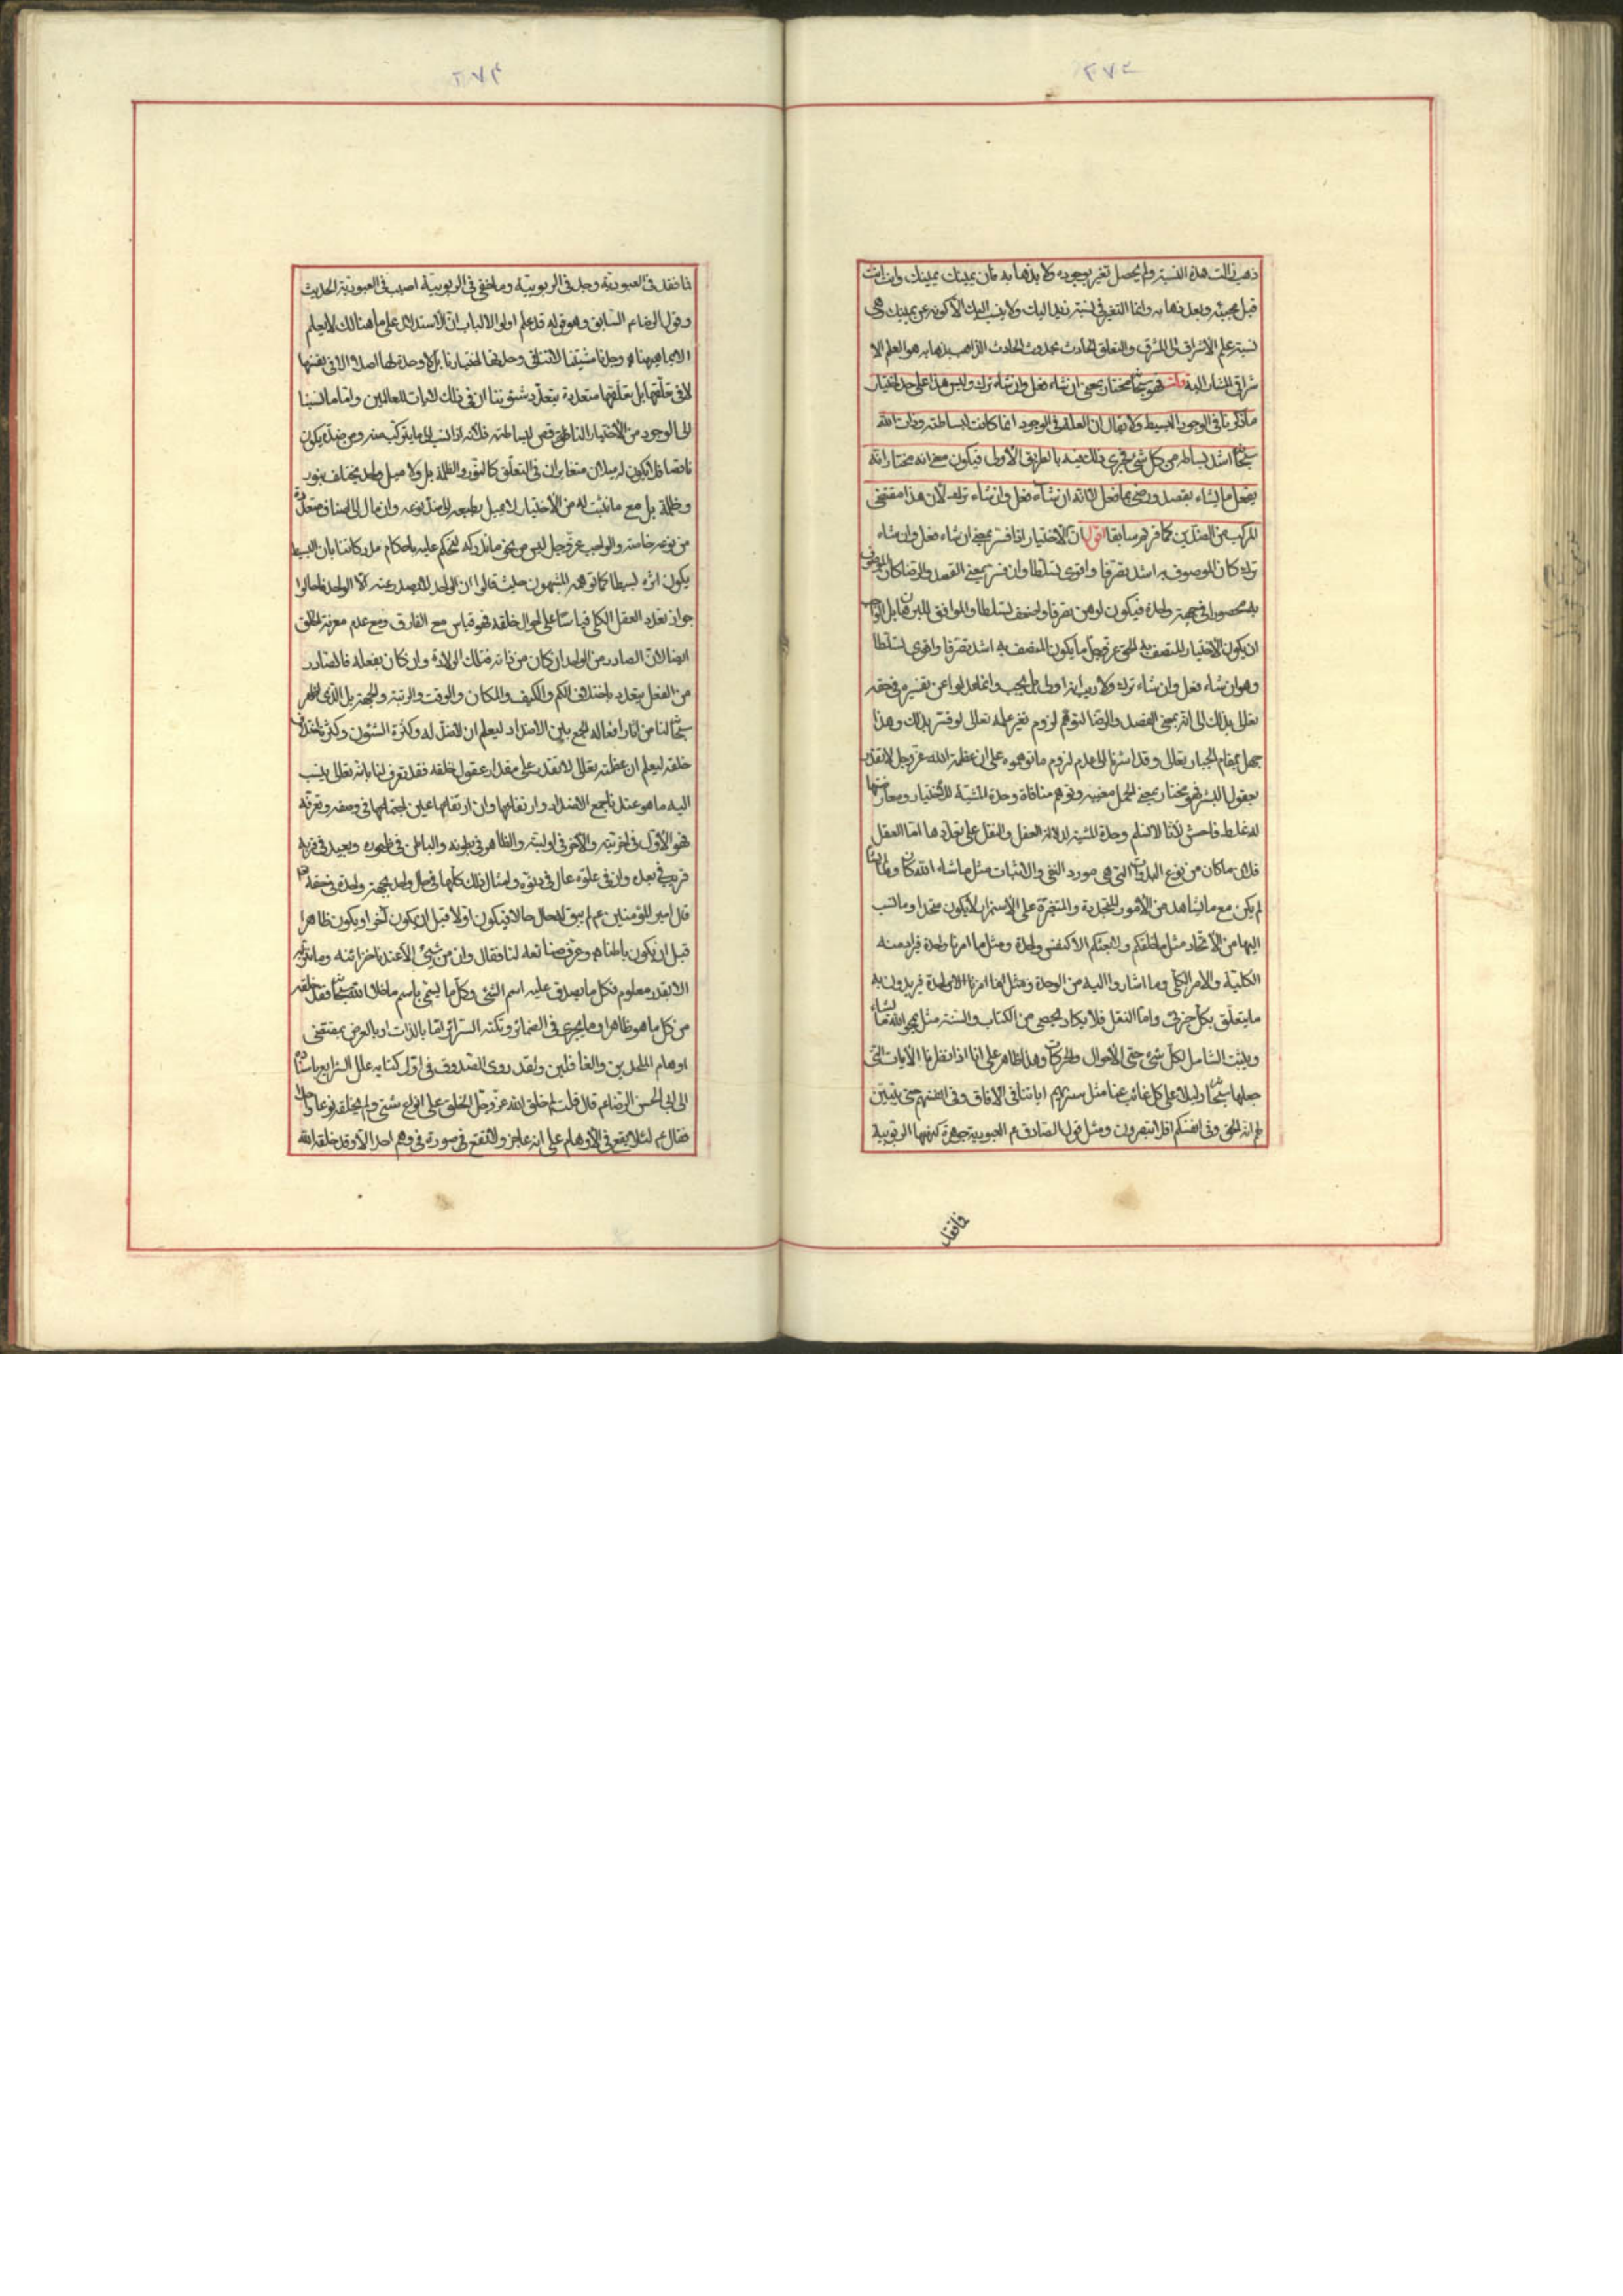 ٢٧٣
ذهب زالت هذه النسبة ولم يحصل تغير بوجوده ولا بذهابه بان يمينك يمينك وانت انت
قبل مجيئه وبعد ذهابه وانما التغير في نسبة زيد اليك ولا ينسب اليك الا كونه عن يمينك فهى
نسبة علم الاشراق الى المشرق والتعلق الحادث بحدوث الحادث الذاهب بذهابه هو العلم الا
شراقى المشار اليه قلت فهو سبحانه مختار بمعنى ان شاء فعل وان شاء ترك وليس هذا على حد اختيار
ما ذكرنا فى الوجود البسيط ولا يقال ان العلة فى الوجود انما كانت لبساطته وذات الله
سبحانه اشد بساطة من كل شئ فيجرى ذلك فيه بالطريق الأولى فيكون معنى انه مختار انه
يفعل ما يشاء بقصد ورضى بما فعل لا انه ان شاء فعل وان شاء ترك لأن هذا مقتضى
المركب من الضدين كما قررتم سابقا اقول ان الاختيار اذا فسر بمعنى ان شاء فعل وان شاء
ترك كان الموصوف به اشد تصرفا واقوى تسلطا وان فسر بمعنى القصد والرضا كان الموصوف
به محصورا فى جهة واحدة فيكون اوهن تصرفا واضعف تسلطا والموافق
ان يكون الاختيار المتصف به الحق عز وجل ما يكون المتصف به اشد تصرفا واقوى تسلطا
وهو ان شاء فعل وان شاء ترك ولا ريب انه اولى بل يجب وانما عدلوا عن تفسيره فى حقه
تعالى بذلك الى انه بمعنى القصد والرضا لتوهم لزوم تغير علمه تعالى لو فسر بذلك وهذا
جهل بمقام الجبار تعالى وقد اشرنا الى عدم لزوم ما توهموه على ان عظمة الله عز وجل لا تقدر
بعقول البشر فهو مختار بمعنى المجمل معنييه وتوهم منافاة وحدة المشية للاختيار ومعارضتها
له غلط فاحش لأنا لا نسلم وحدة المشية لدلالة العقل والنقل على تعددها اما العقل
فلان ما كان من نوع البدوات التى هى مورد النفى والاثبات مثل ما شاء الله كان وما لم يشأ
لم يكن مع ما نشاهد من الأمور المتجددة والمتغيرة على الاستمرار لا يكون متحدا وما نسب
اليها من الاتحاد مثل ما خلقكم ولا بعثكم الا كنفس واحدة ومثل وما امرنا الا واحدة فيراد منه
الكلية والامر الكلى وما اشاروا اليه من الوحدة ومثل انما امرنا الا واحدة فيريدون به
ما يتعلق بكل جزئى واما النقل فلا يكاد يحصى من الكتاب والسنة مثل يمحو الله ما يشاء
ويثبت الشامل لكل شئ حتى الأحوال والحركات وهذا ظاهر على انا اذا نظرنا الآيات التى
جعلها سبحانه دليلا على كل غائب عنا مثل سنريهم اياتنا فى الافاق وفى انفسهم حتى يتبين
لهم انه الحق وفى انفسكم افلا تبصرون ومثل قول الصادق ع العبودية جوهرة كنهها الربوبية
فما فقد
٢٧٤
فما فقد فى العبودية وجد فى الربوبية وما خفى فى الربوبية اصيب فى العبودية الحديث
وقول الرضا ع السابق وهو قوله قد علم اولو الالباب ان الاستدلال على ما هنالك لا يعلم
الا بما هيهنا وجدنا مشيتنا لا تتنافى وحدتها اختيارنا بل لا وحدة لها اصلا لا فى نفسها
لا فى تعلقها بل تعلقها متعددة بتعدد شئوننا ان فى ذلك لايات للعالمين واما ما نسبنا
الى الوجود من الاختيار الناقص لبساطته فلأنه اذا نسب الى ما يتركب منه ومن ضده يكون
ناقصا فلا يكون له ميلان متغايران فى التعلق كالنور والظلمة بل ولا ميل واحد يختلف بنور
وظلمة بل مع ما نثبت له من الأختيار لا يميل بطبعه الى ضد نوعه وان مال الى اصناف متعددة
من نوعه خاصة والواجب عز وجل ليس من نحو ما ندركه لنحكم عليه باحكام مدركاتنا بان البسيط
يكون اثره بسيطا كما توهمه المشبهون حيث قالوا ان الواحد لا يصدر عنه الا الواحد فاحالوا
جواز تعدد العقل الكلى قياسا على احوال خلقه فهو قياس مع الفارق ومع عدم معرفة الخلق
ايضا لان الصادر من الواحد ان كان من ذاته فذلك الولادة وان كان بفعله فالصادر
من الفعل يتعدد باختلاف الكم والكيف والمكان والوقت والرتبة والجهة بل الذى اظهر
سبحانه لنا من اثار افعاله الجمع بين الاضداد ليعلم ان لا ضد له وكثرة الشئون وكثرة اختلاف
خلقه ليعلم ان عظمته تعالى لا تقدر على مقدار عقول خلقه فقد تعرف لنا بانه تعالى ينسب
اليه ما هو عندنا جمع الاضداد وارتفاعها وان ارتفاعها عين اجتماعها فى وصفه وتعرفه
فهو الأول فى اخريته والآخر فى اوليته والظاهر فى بطونه والباطن فى ظهوره وبعيد فى قربه
قريب فى بعده ودان فى علوه عال فى دنوه وامثال ذلك كلها فى حال واحد بجهة واحدة فى حقه
قال امير المؤمنين ع لم يسبق له حال حالا فيكون اولا قبل ان يكون آخرا ويكون ظاهرا
قبل ان يكون باطنا وعرفنا صنائعه لنا فقال وان من شئ الا عندنا خزائنه وما ننزله
الا بقدر معلوم فكل ما يصدق عليه اسم الشئ وكل ما يسمى باسم مما خلا الله سبحانه فقد خلقه
من كل ما هو ظاهر او ما يجرى فى الضمائر وتكنه السرائر اما بالذات او بالعرض بمقتضى
اوهام الملحدين والغافلين ولقد روى الصدوق فى اول كتابه علل الشرايع باسناده
الى ابى الحسن الرضا ع قال قلت لم خلق الله عز وجل الخلق على انواع شتى ولم يخلقه نوعا واحدا
فقال ع لئلا يقع فى الأوهام على انه عاجز ولا تقع صورة فى وهم احد الا وقد خلق الله